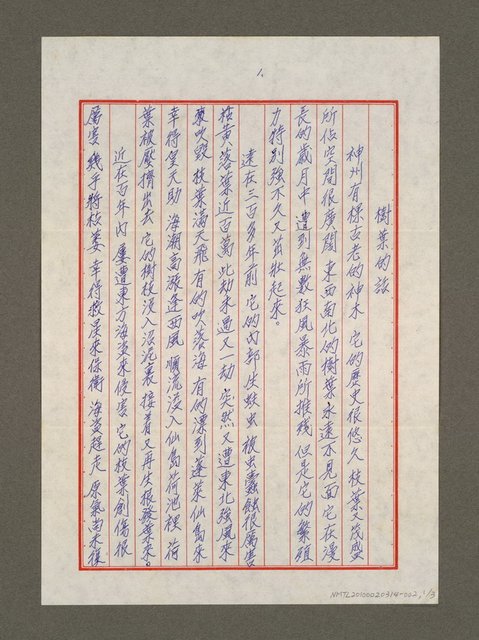 1、
樹葉的話
神州有棵古老的神木 它的歷史很悠久 枝葉又茂盛
所佔空間很廣闊 東西南北的樹葉永遠不見面 它在漫
長的歲月中 遭到無數狂風暴雨所摧殘 但是它的繁殖
力特別強不久又茁壯起來。
遠在三百多年前 它的內部生蚊虫 被虫蠹蝕很厲害
枯黃落葉近百萬 此劫未過又一劫 突然又遭東北強風來
襲吹毀 枝葉滿天飛 有的吹落海 有的漂到蓬萊仙島來
幸得皇天助 海潮高漲逢西風 順流浸入仙島荷池裡 荷
葉被壓擠出去 它的樹枝浸入沼泥裏 接着又再生根發葉來。
近在百年內 屢遭東方海盜來侵害 它的枝葉創傷很
厲害 幾乎將枝萎 幸得救星來保衛 海盜趕走 原氣尚未復
NMTL20100020314-002, 1/3